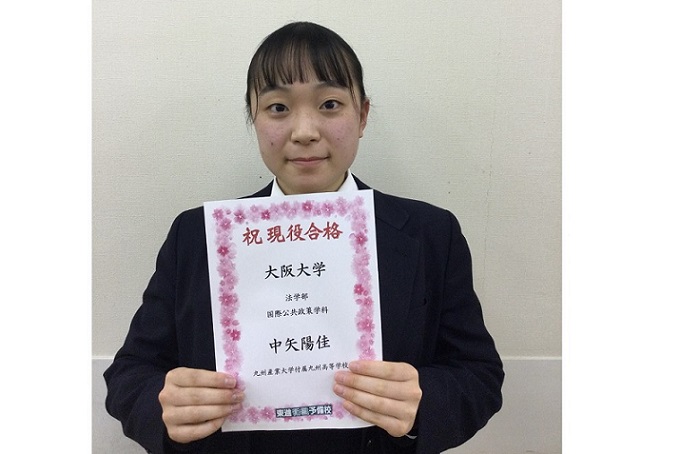 祝 現役合格
大阪大学
法学部
国際公共政策学科
中矢陽佳
九州産業大学付属九州高等学校
東進衛星予備校